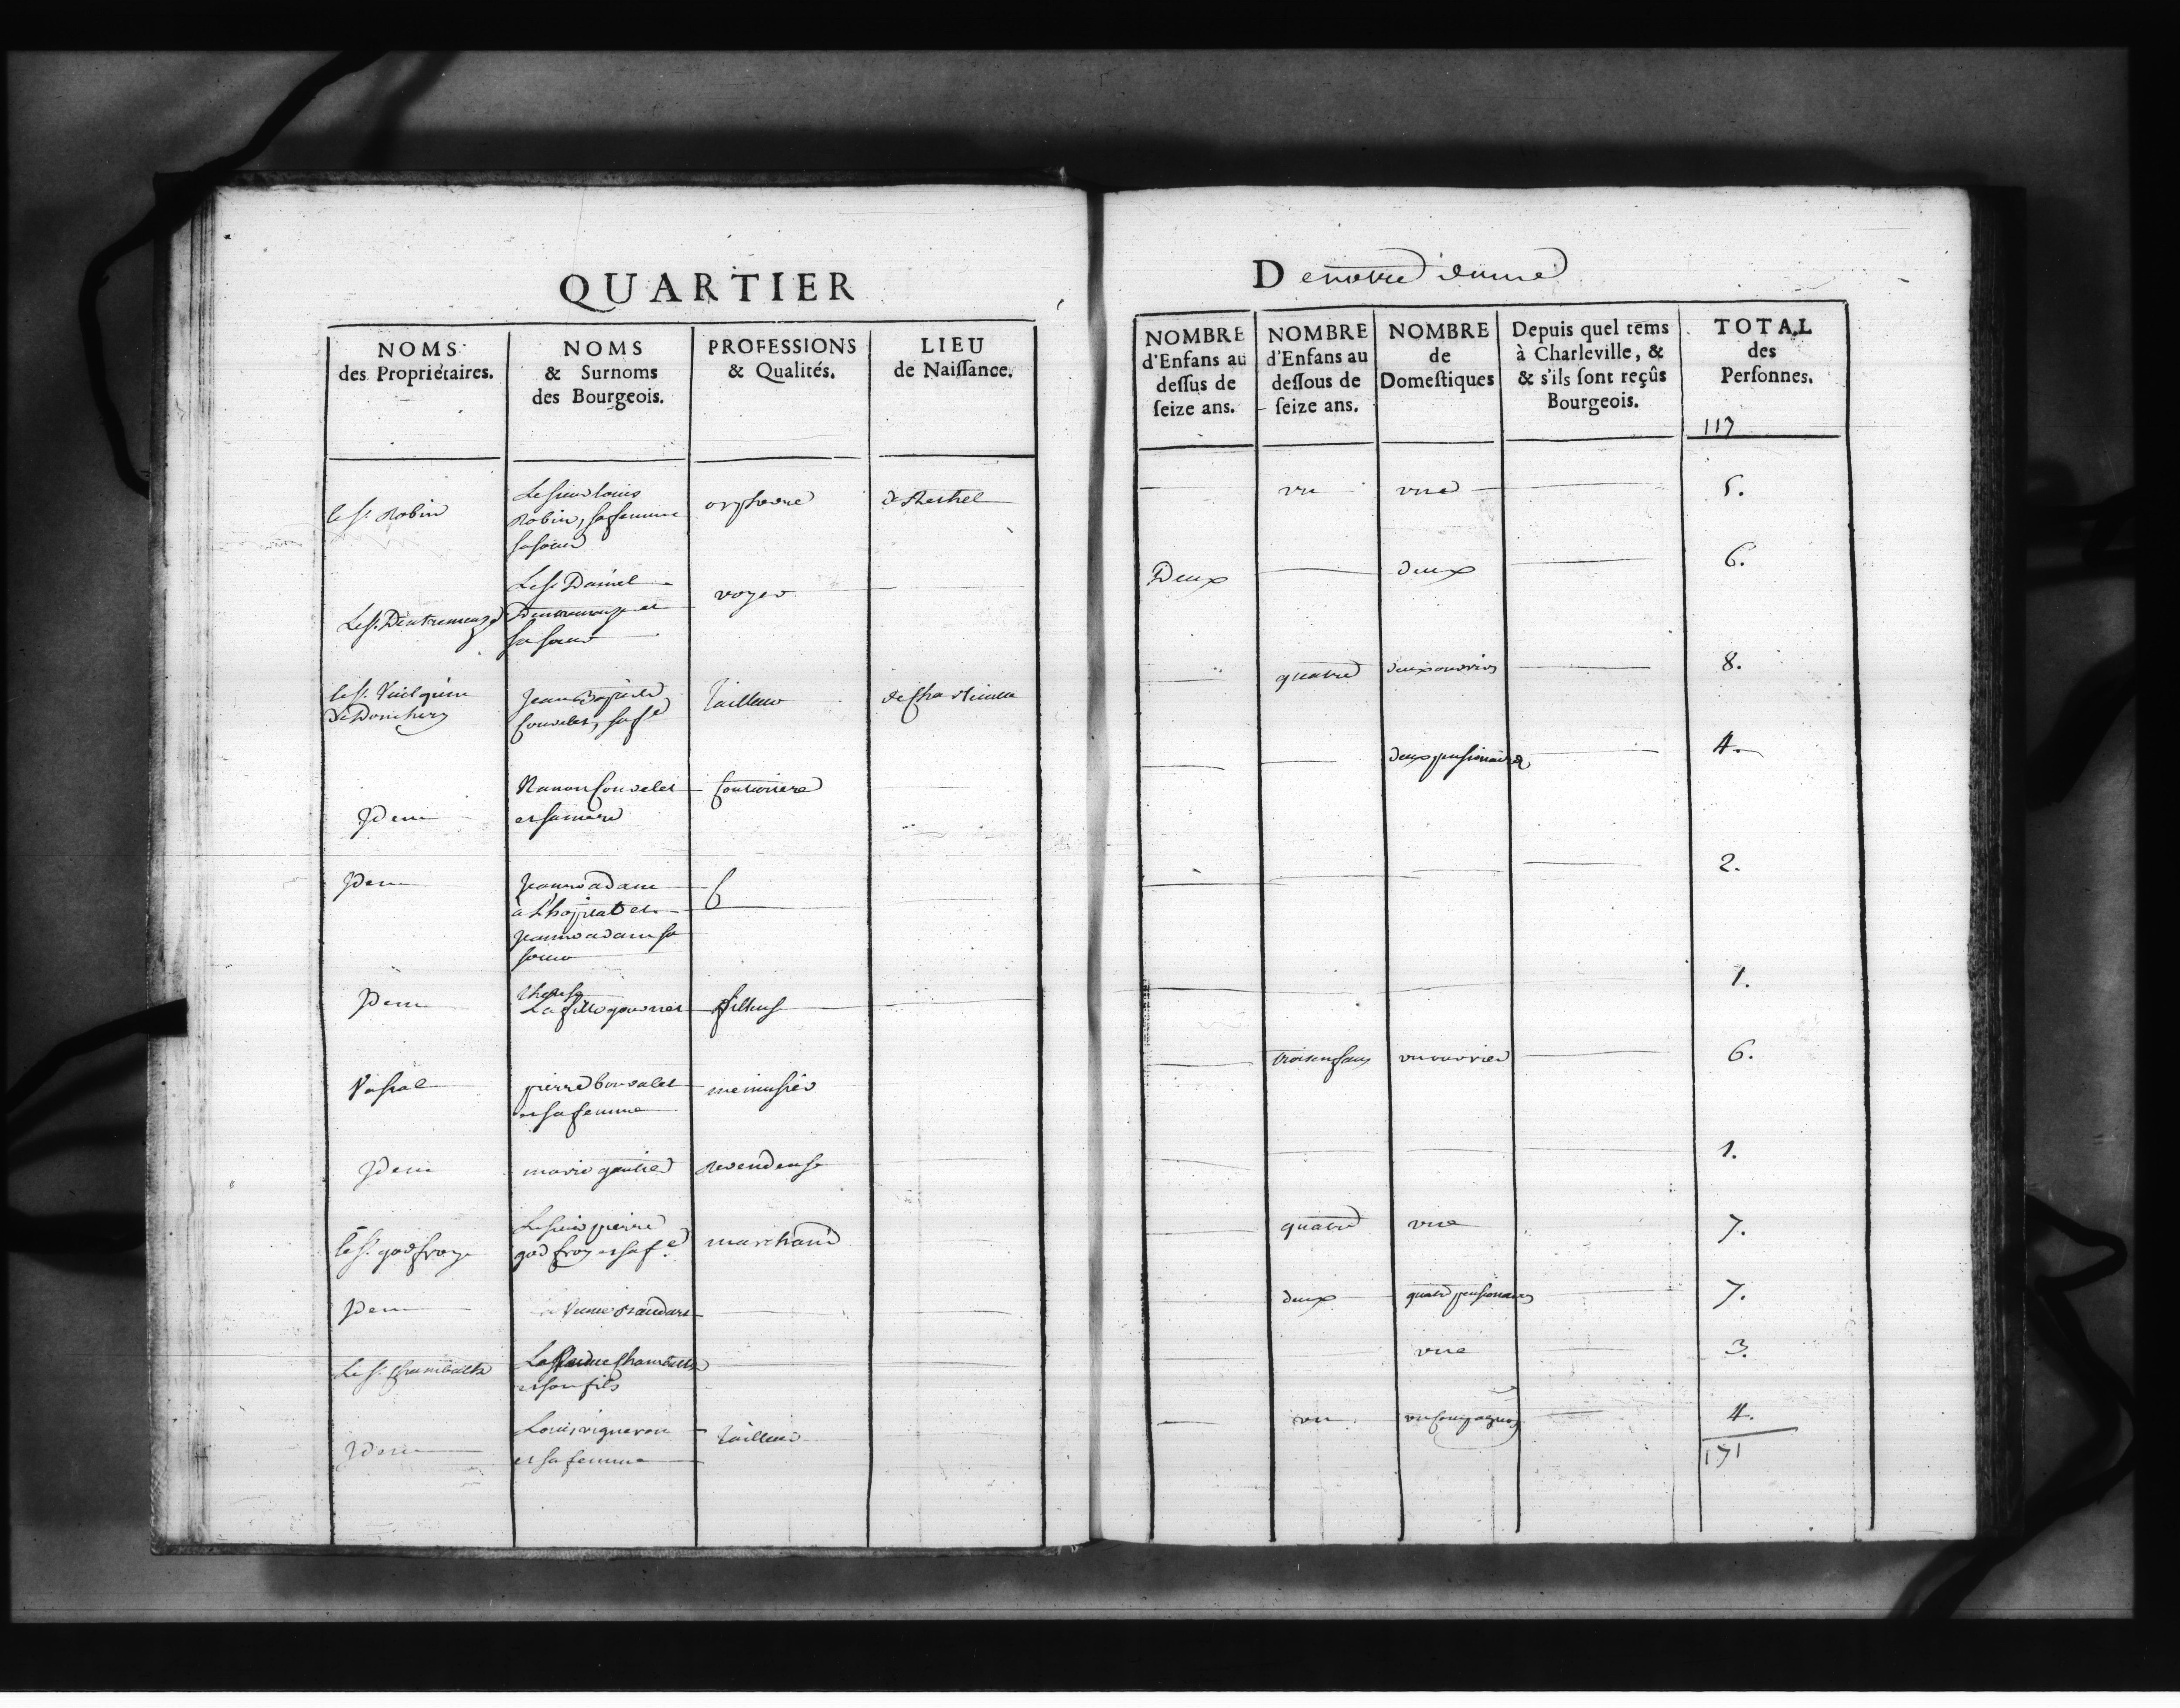 QUARTIER
NOMS
des Propriétaires.
NOMS
& Surnoms
des Bourgeois.
PROFESSIONS
& Qualités.
LIEU
de Naissance.
le Sr. Robin
Le sieur louis
Robin, sa femme
sa soeur
orphevre
de Rethel
Le Sr. Dentremeuse
Le Sr. Daniel
et
sa soeur
voyer
le Sr.
de Donchery
Jean Baptiste
Couvelet, sa fe
tailleur
de Charleville
Idem
Nanon Couvelet
et sa mère
Couturiere
Idem
Jeanne adam
à L'hopital et
Jeanne adam sa
soeur
Idem
therese
La fille
fileuse
Vassal
pierre
et sa femme
menusier
Idem
marie gautier
Revendeuse
le Sr. godfroy
Le sieur pierre
godfroy et sa fe.
marchand
Idem
la Veuve
Le Sr.
La Veuve
et son fils
Idem
Louis vigneron
et sa femme
tailleur
De notre dame
NOMBRE
d'Enfans au
dessus de
seize ans.
NOMBRE
d'Enfans au
dessous de
seize ans.
NOMBRE
de
Domestiques
Depuis quel tems
à Charleville, &
& s'ils sont reçûs
Bourgeois.
TOTAL
des
Personnes.
117
un
une
5.
Deux
deux
6.
quatre
deux ouvriers
8.
deux pensionaires
4.
2.
1.
trois enfans
un ouvrier
6.
1.
quatre
une
7.
deux
quatre pensionaires
7.
une
3.
un
un Compagnon
4.
171